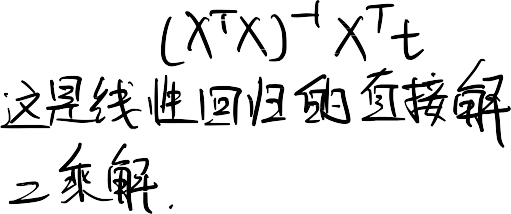 (XᵀX)⁻¹Xᵀt
这是线性回归的直接解
二乘解.